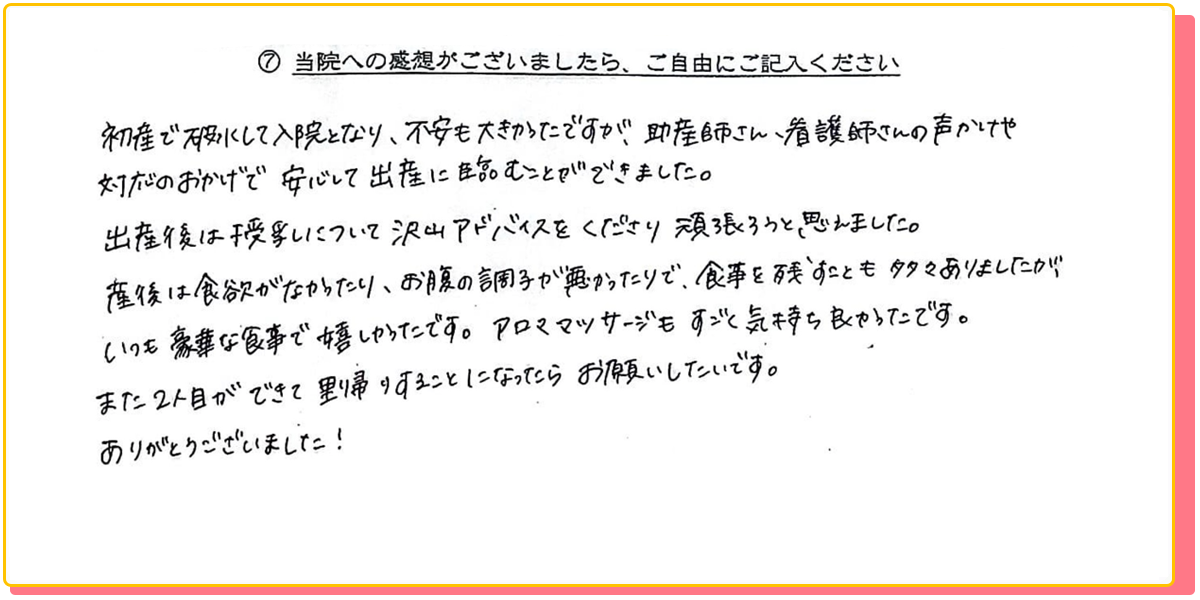 ⑦ 当院への感想がございましたら、ご自由にご記入ください
初産で破水して入院となり、不安も大きかったですが、助産師さん、看護師さんの声かけや
対応のおかげで 安心して出産に臨むことができました。
出産後は授乳について沢山アドバイスをくださり 頑張ろうと思えました。
産後は食欲がなかったり、お腹の調子が悪かったりで、食事を残すことも多々ありましたが、
いつも豪華な食事で嬉しかったです。アロママッサージもすごく気持ち良かったです。
また2人目ができて里帰りすることになったらお願いしたいです。
ありがとうございました！